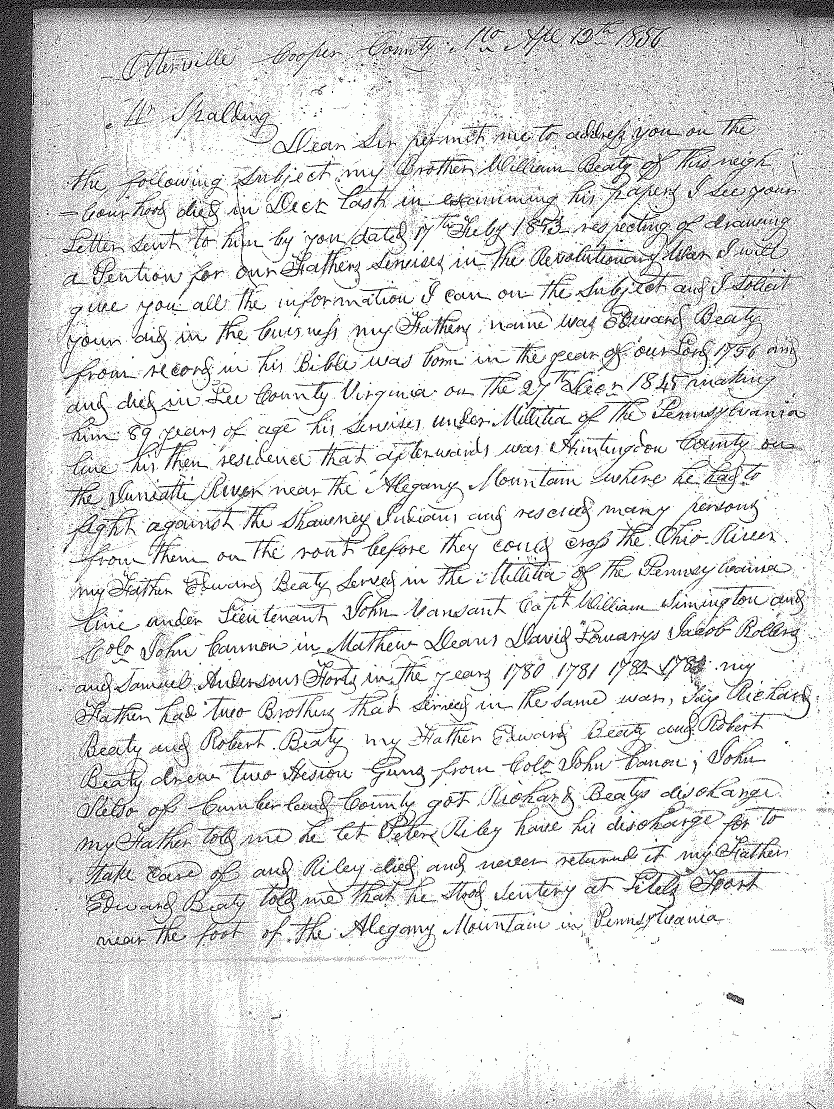 Otterville Cooper County Mo Apl 12th 1886
Mr Spalding
Dear Sir permit me to address you on the
the following Subject my Brother William Beaty of this neigh
-bourhood died in Decr last in examining his papers I see your
Letter sent to him by you dated 17th Feby 1873 respecting of drawing
a Pention for our Fathers Servises in the Revolutionary War I will
give you all the information I can on the Subject and I Solicit
your aid in the buisness my Fathers name was Edward Beaty
from record in his Bible was born in the year of our Lord 1756 and
and died in Lee County Virginia on the 27th Decr 1845 making
him 89 years of age his Servises under Millitia of the Pennsylvania
line his then residence that afterwards was Huntingdon County on
the Juniatti River near the Alegany Mountain where he had to
fight against the Shawney Indians and rescued many persons
from them on the rout before they could cross the Ohio River
my Father Edward Beaty Served in the Millitia of the Pennsylvania
line under Lieutenant John Vansant Capt William Simington and
Colo John Cannon in Mathew Deans David Lowarys Jacob Rollers
and Samuel Andersons Forts in the years 1780 1781 1782 my
Father had two Brothers that served in the same war, Say Richard
Beaty and Robert Beaty my Father Edward Beaty and Robert
Beaty drew two Hesion Guns from Colo John Canon; John
of Cumberland County got Richard Beatys discharge
my Father told me he let Peter Riley have his discharge for to
take care of and Riley died and never returned it my Father
Edward Beaty told me that he stood Sentery at Fort
near the foot of the Alegany Mountain in Pennsylvania